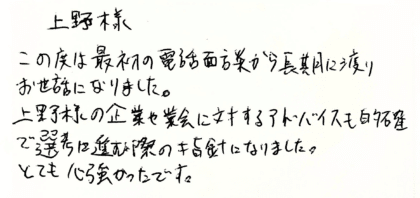 上野様
この度は最初の電話面談から長期に渡り
お世話になりました。
上野様の企業や業会に対するアドバイスも的確
で選考に進む際の指針になりました。
とても心強かったです。